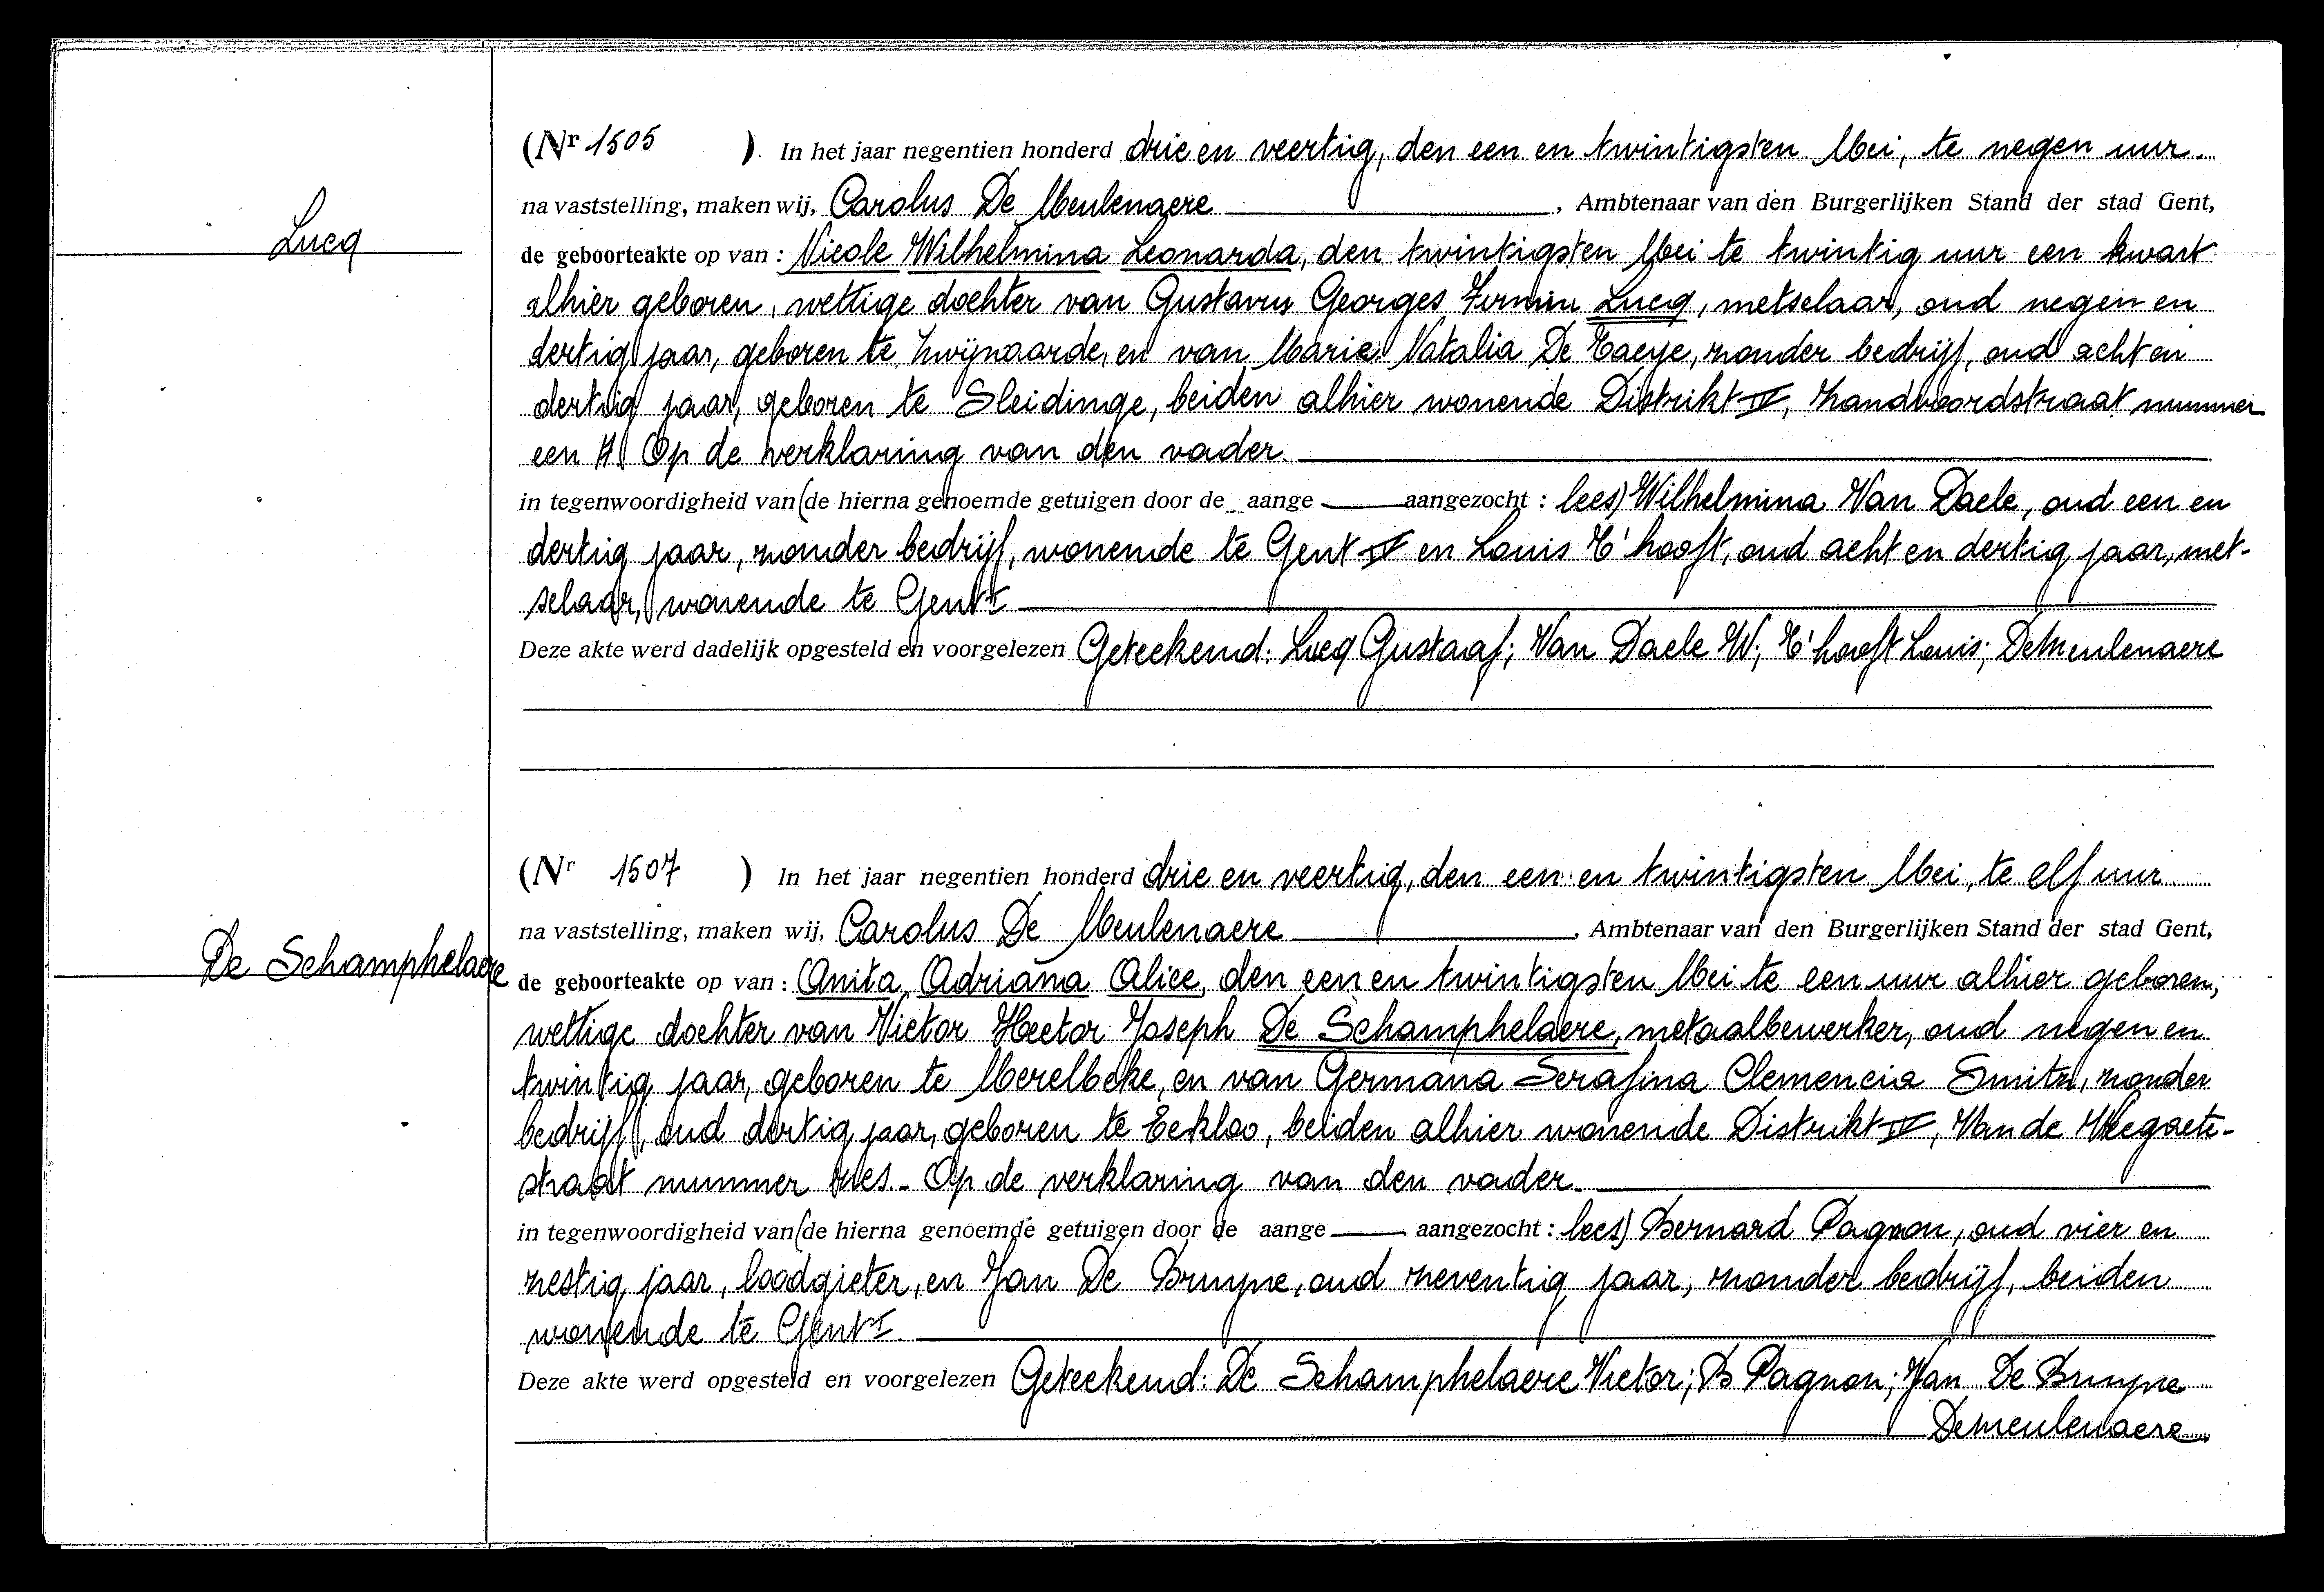 (Nr 1505 ). In het jaar negentien honderd drie en veertig, den een en twintigsten Mei, te negen uur
Lucq
na vaststelling, maken wij, Carolus De Meulenaere, Ambtenaar van den Burgerlijken Stand der stad Gent,
de geboorteakte op van : Nicole Wilhelmina Leonarda, den twintigsten Mei te twintig uur een kwart
alhier geboren, wettige dochter van Gustavus Georges Firmin Lucq, metselaar, oud negen en
dertig jaar, geboren te Zwijnaarde, en van Maria Natalia De Taeye, zonder bedrijf, oud acht en
dertig jaar, geboren te Sleidinge, beiden alhier wonende Distrikt IV, Zandvoordstraat nummer
een A. Op de verklaring van den vader.
in tegenwoordigheid van (de hierna genoemde getuigen door de aange aangezocht : lees) Wilhelmina Van Daele, oud een en
dertig jaar, zonder bedrijf, wonende te Gent IV en Louis T'hooft, oud acht en dertig jaar, met-
selaar, wonende te Gent I
Deze akte werd dadelijk opgesteld en voorgelezen Geteekend: Lucq Gustaaf; Van Daele W; T'hooft Louis; Demeulenaere
(Nr 1507 ) In het jaar negentien honderd drie en veertig, den een en twintigsten Mei, te elf uur
De Schamphelaere
na vaststelling, maken wij, Carolus De Meulenaere, Ambtenaar van den Burgerlijken Stand der stad Gent,
de geboorteakte op van : Anita, Adriana Alice, den een en twintigsten Mei te een uur alhier geboren,
wettige dochter van Victor Hector Joseph De Schamphelaere, metaalbewerker, oud negen en
twintig jaar, geboren te Merelbeke, en van Germana Serafina Clemencia Smitz, zonder
bedrijf, oud dertig jaar, geboren te Eekloo, beiden alhier wonende Distrikt IV, Van de Weegaete-
straat nummer zes. Op de verklaring van den vader.
in tegenwoordigheid van (de hierna genoemde getuigen door de aange aangezocht : lees) Bernard Pagnon, oud vier en
zestig jaar, loodgieter, en Jan De Bruyne, oud zeventig jaar, zonder bedrijf, beiden
wonende te Gent I.
Deze akte werd opgesteld en voorgelezen Geteekend: De Schamphelaere Victor; B Pagnon; Jan De Bruyne
Demeulenaere